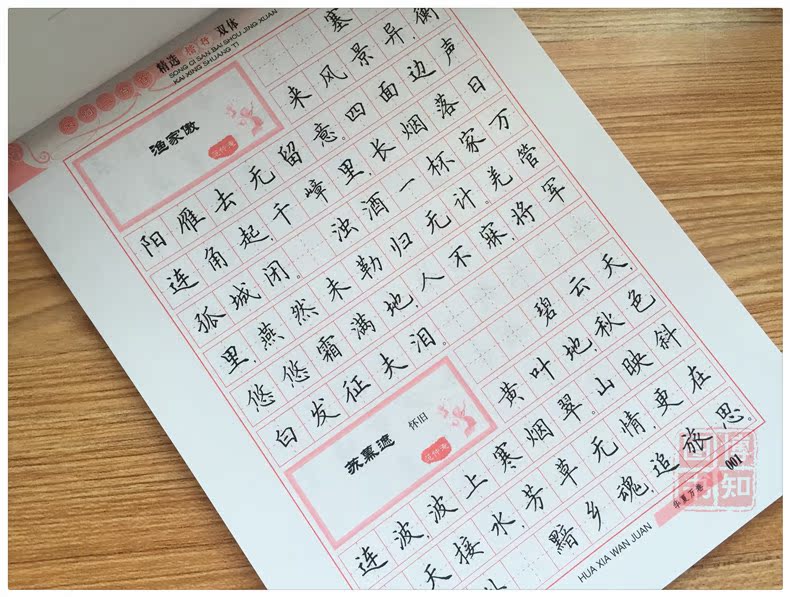 精选 楷行 双体
SONG CI SAN BAI SHOU JING XUAN
KAI XING SHUANG TI
渔家傲
范仲淹
塞
来风景异,衡
阳雁去无留意。四面边声
连角起,千嶂里,长烟落日
孤城闭。 浊酒一杯家万
里,燕然未勒归无计。羌管
悠悠霜满地,人不寐,将军
白发征夫泪。
苏幕遮 怀旧
范仲淹
碧云天,
黄叶地,秋色
连波,波上寒烟翠。山映斜
天接水,芳草无情,更在
黯乡魂,追旅思。
华夏万卷 001
HUA XIA WAN JUAN
博知图书